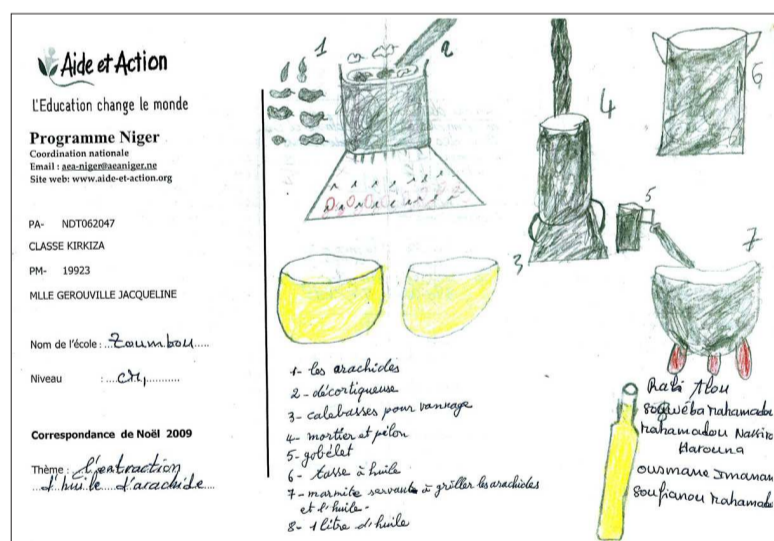 Aide et Action
L'Education change le monde
Programme Niger
Coordination nationale
Email : aea-niger@aeaniger.ne
Site web: www.aide-et-action.org
PA- NDT062047
CLASSE KIRKIZA
PM- 19923
MLLE GEROUVILLE JACQUELINE
Nom de l'école : Zoumbou
Niveau :
Correspondance de Noël 2009
Thème : L'extraction
d'huile d'arachide
1
2
4
6
5
3
7
1- les arachides
2- décortiqueuse
3- calebasses pour vannage
4- mortier et pilon
5- gobélet
6- tasse à huile
7- marmite servant à griller les arachides
et l'huile-
8- 1 litre d'huile
8
Rabi Alou
Mahamadou
Mahamadou
Harouna
Ousmane Imanan
Soufianou Mahamadou